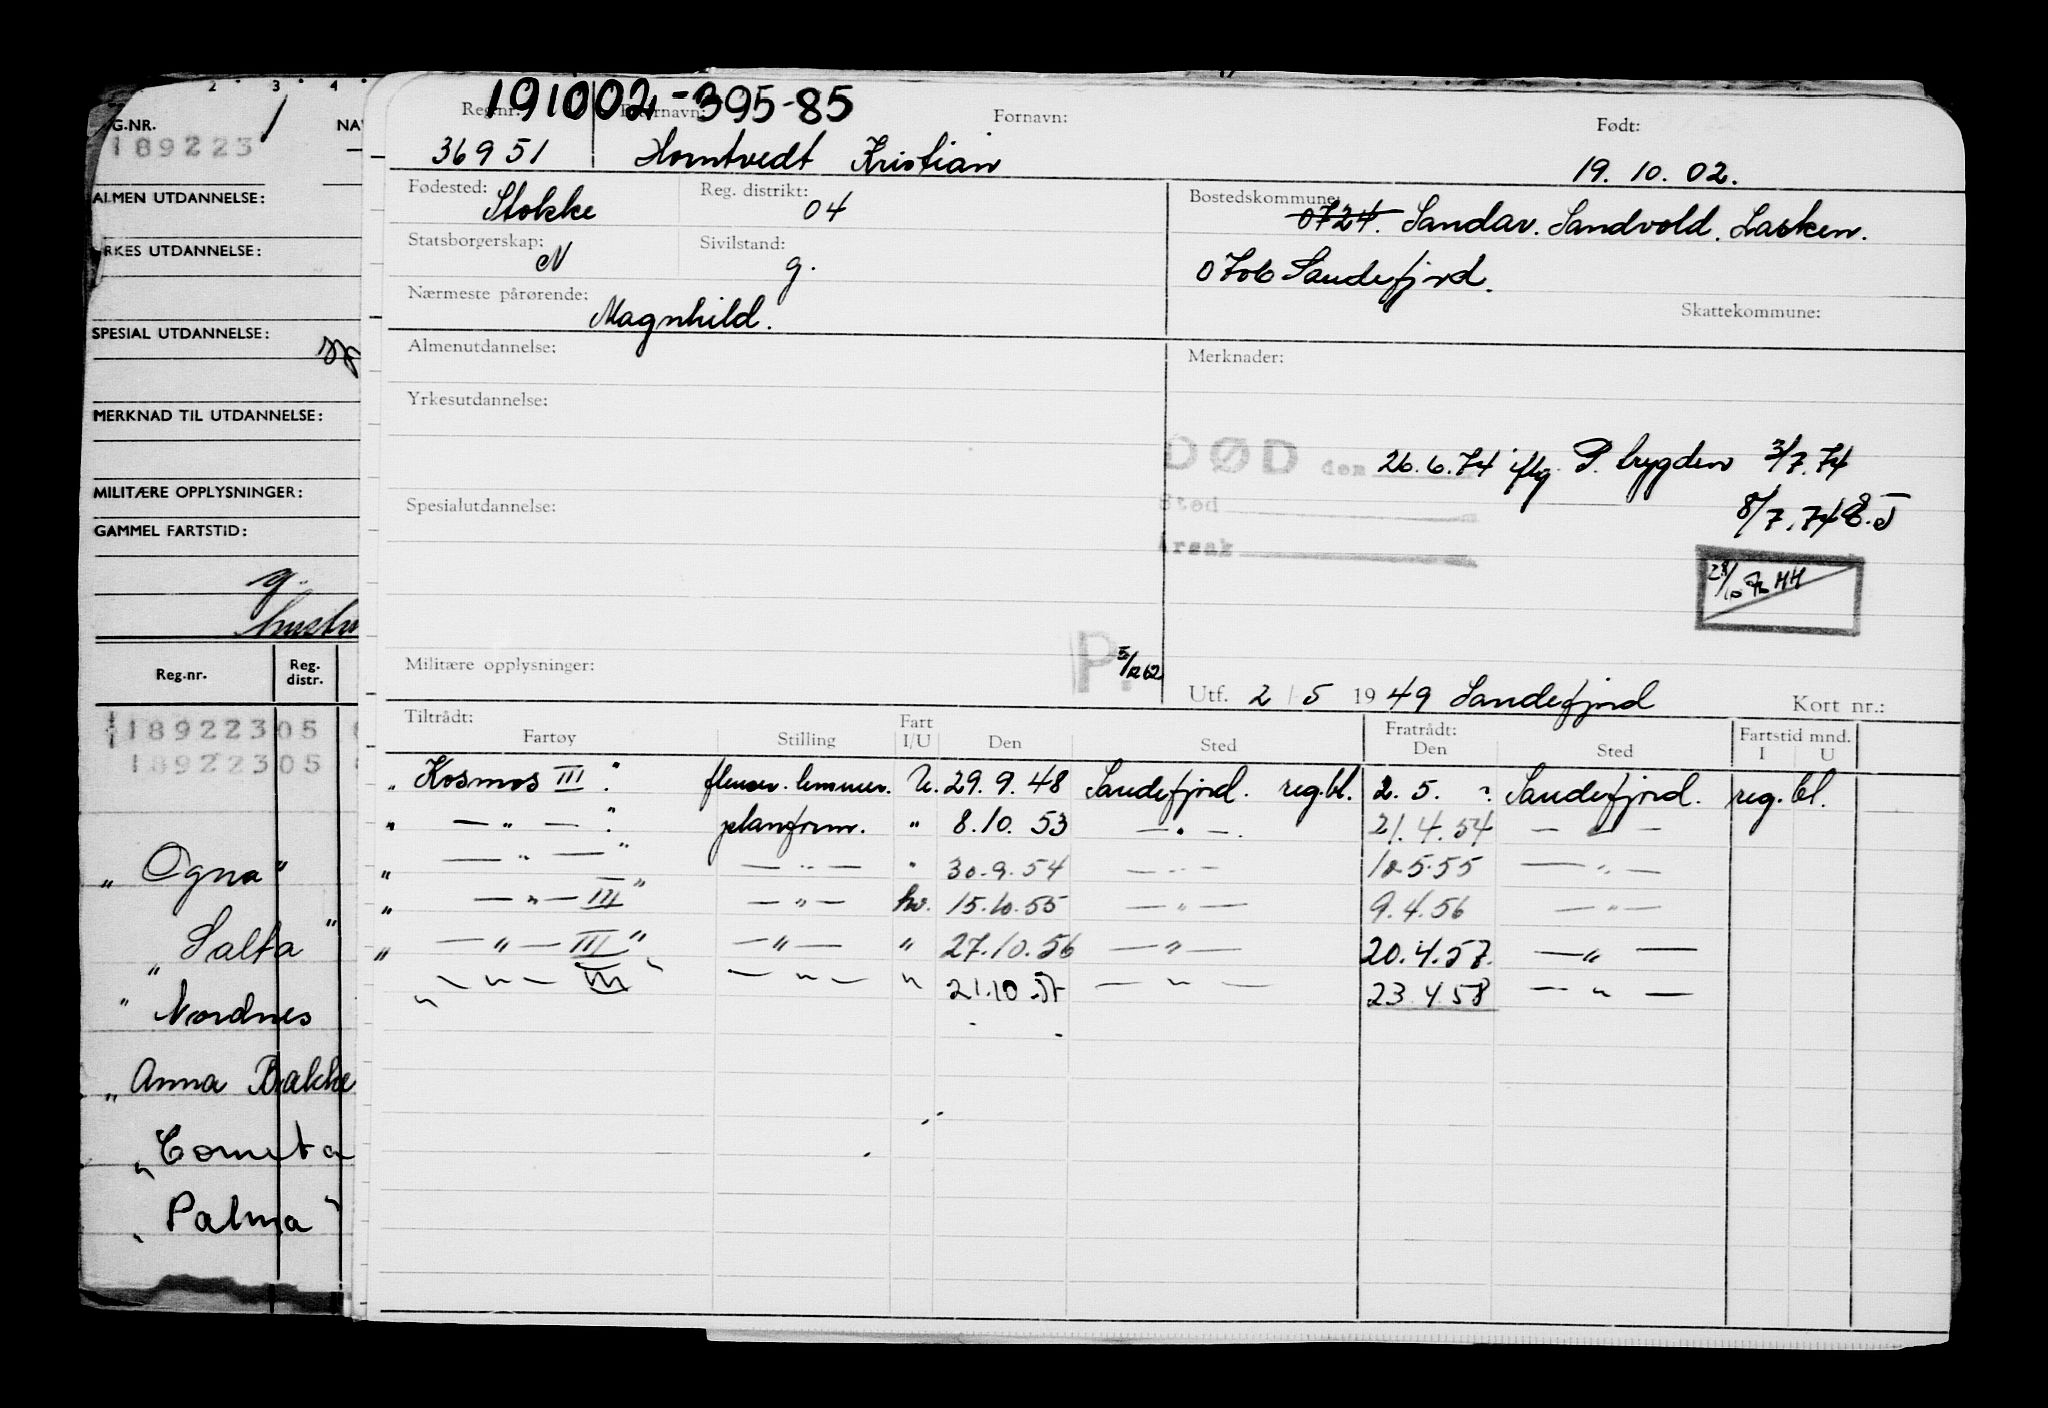 2 3 4
G.NR. NA
189223 1
ALMEN UTDANNELSE:
RKES UTDANNELSE:
SPESIAL UTDANNELSE:
MERKNAD TIL UTDANNELSE:
MILITÆRE OPPLYSNINGER:
GAMMEL FARTSTID:
g.
Reg.nr. Reg. distr.
18922305
18922305
„ Ogna "
„ Salta "
" Nordnes
„ Anna Bakke
„ Cometa
„ Palma "
191002-395-85
Reg.nr. Etternavn: Fornavn: Født:
36951 Horntvedt Kristian 19. 10. 02.
Fødested: Stokke Reg. distrikt: 04 Bostedskommune:
0724. Sandar. Sandvold. Lasken.
Statsborgerskap: N Sivilstand: g.
0706 Sandefjord.
Nærmeste pårørende: Magnhild. Skattekommune:
Almenutdannelse: Merknader:
Yrkesutdannelse:
DØD den 26.6.74 iflg. P. bygden 3/7.74
Spesialutdannelse: Sted 8/7.74
Årsak
28/10
Militære opplysninger: P. 5/12 62
Utf. 2 / 5 1949 Sandefjord Kort nr.:
Tiltrådt: Fart Fratrådt: Fartstid mnd.
Fartøy Stilling I/U Den Sted Den Sted I U
„ Kosmos III " flenser. lemmer. U. 29. 9. 48 Sandefjord. reg.bl. 2. 5. ? Sandefjord. reg. bl.
„ — " — " planform. " 8.10. 53 — " —. 21.4.54 — " —
„ — " — " — " — " 30.9.54 — " — 12.5.55 — " —
„ — " — III " — " — hv. 15.10.55 — " — 9.4.56 — " —
„ — " — III " — " — " 27.10.56 — " — 20.4.57. — " —
„ — " — III " — " — " 21.10.57 — " — 23.4.58 — " —